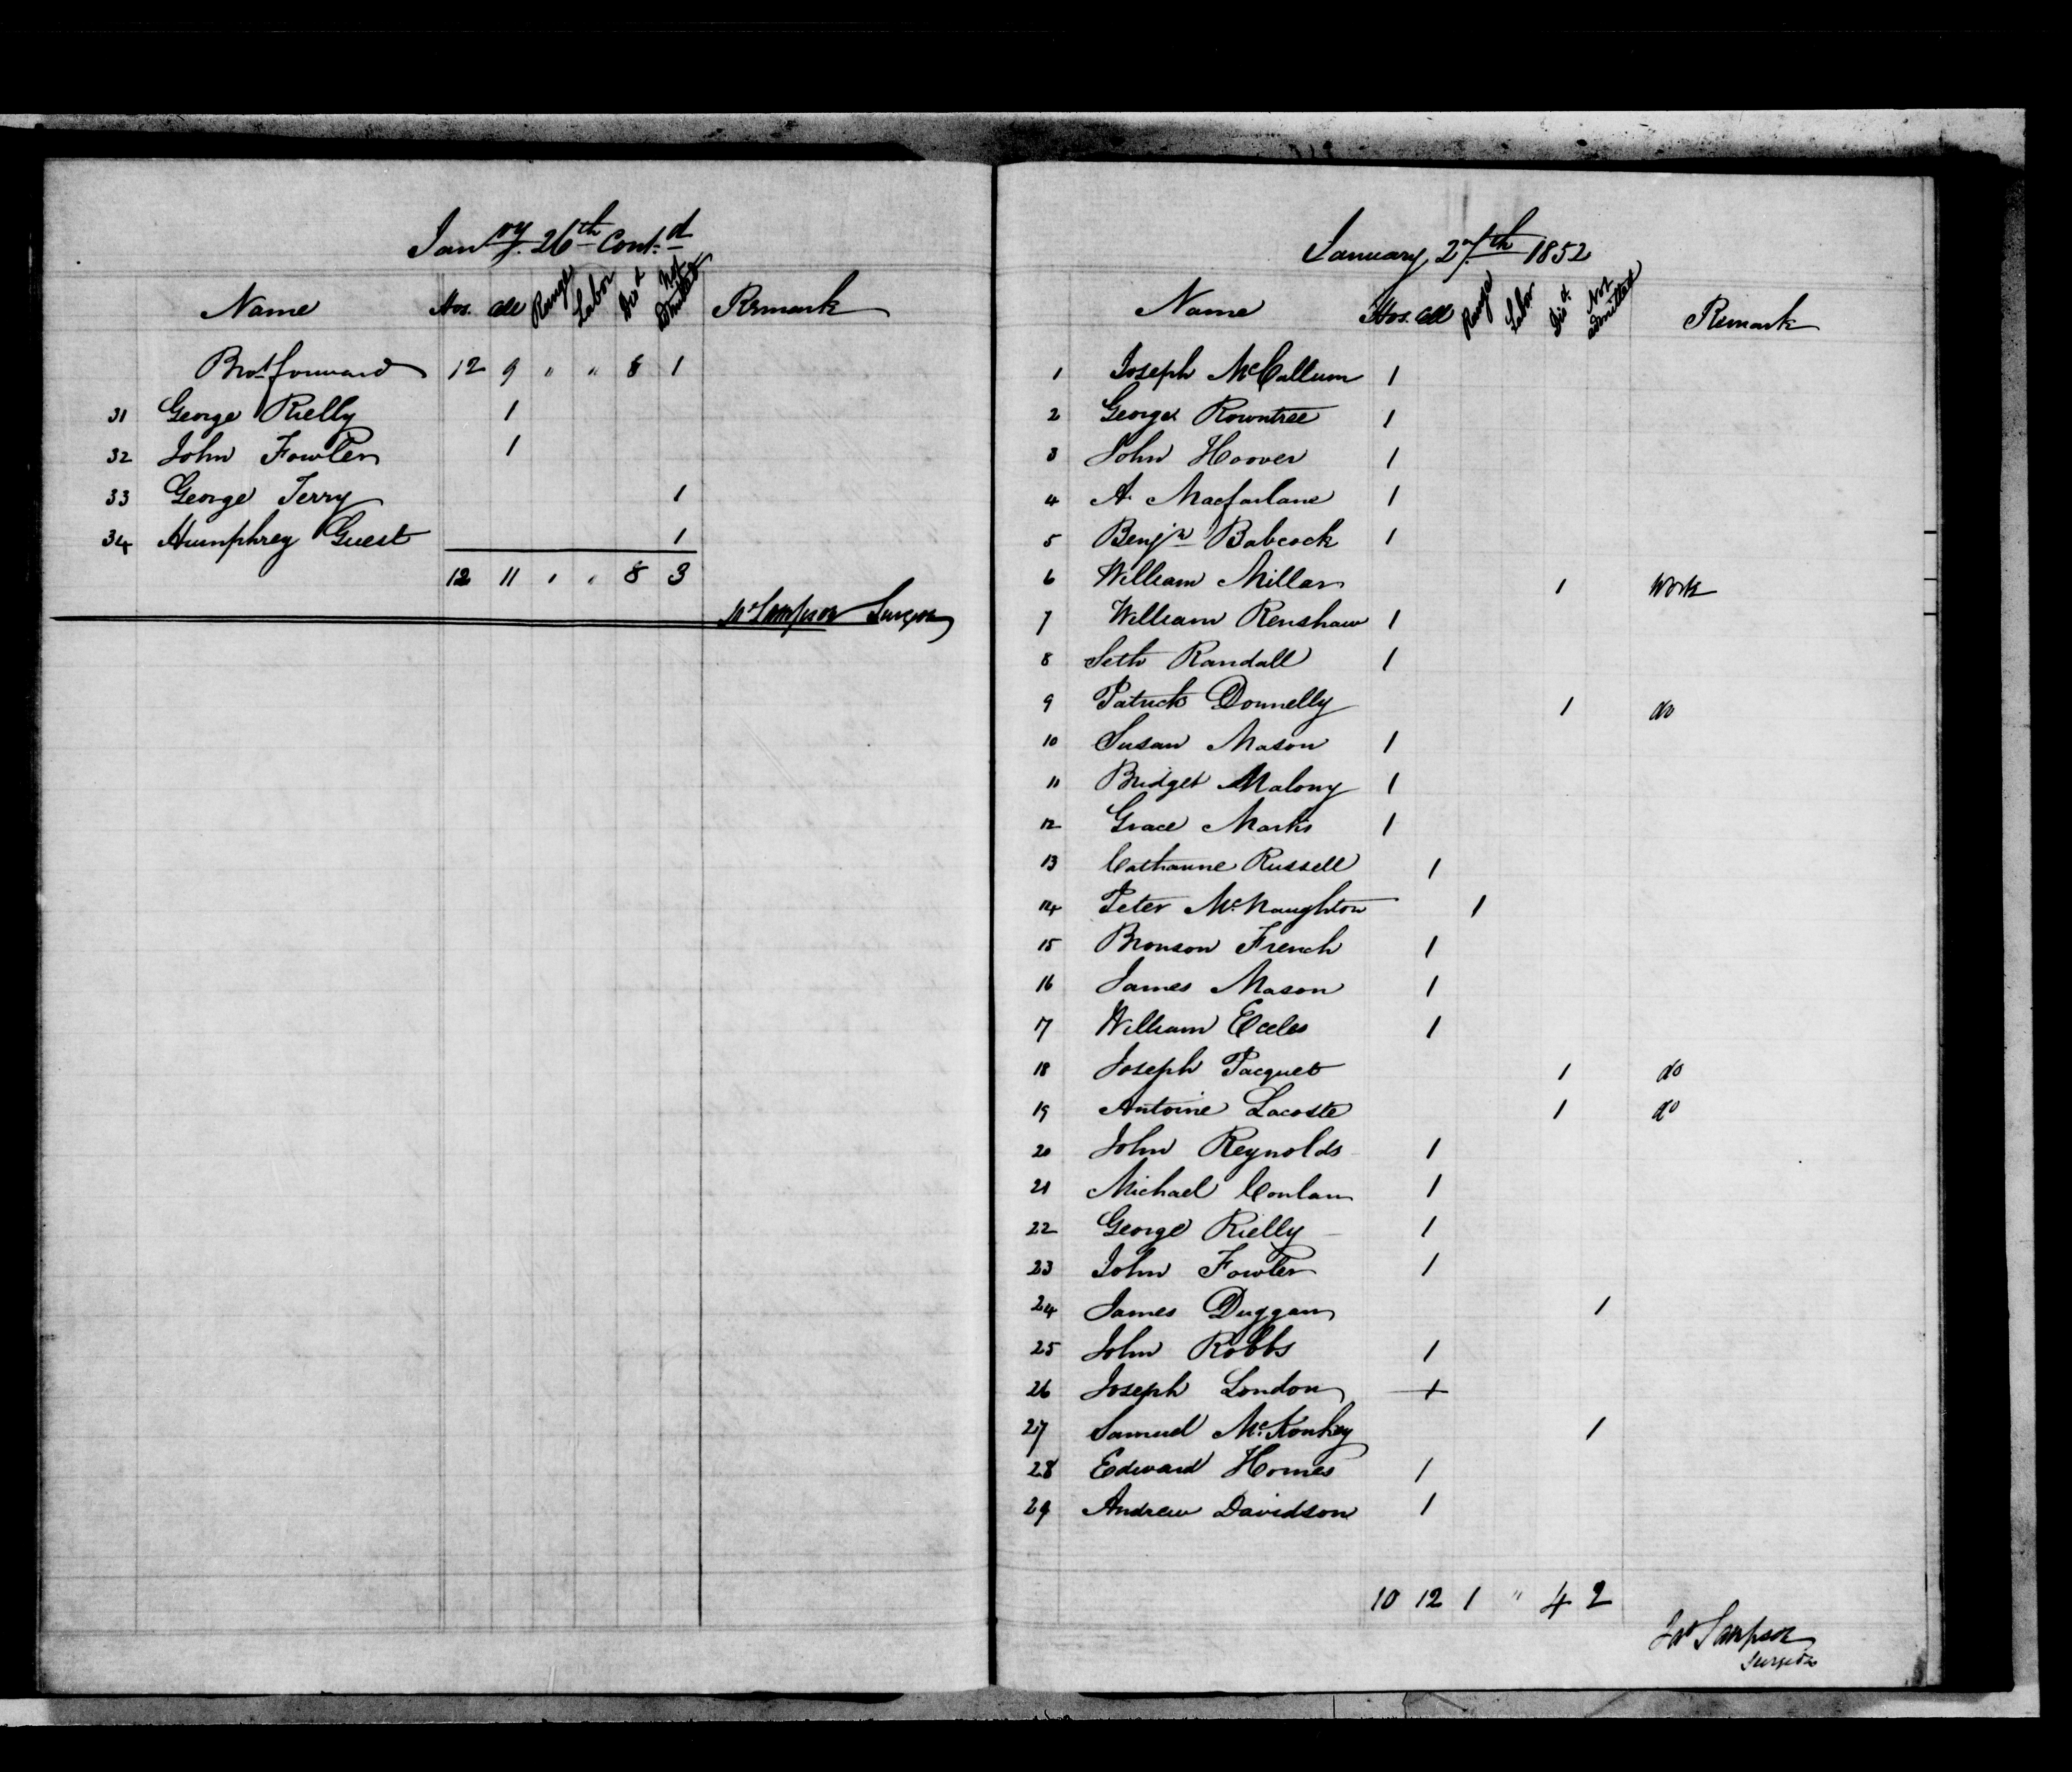 Janry. 26th Cont.d
Name Hos. Cell Range Labor Dis.d Not admitted Remark
Brot. forward 12 9 " " 8 1
31 George Rielly 1
32 John Fowler 1
33 George Terry 1
34 Humphrey Guest 1
12 11 " " 8 3
Sampson Surgeon
January 27th 1852
Name Hos. Cell Range Labor Dis.d Not admitted Remark
1 Joseph McCallum 1
2 George Rowntree 1
3 John Hoover 1
4 A. Macfarlane 1
5 Benjn Babcock 1
6 William Millar 1 Work
7 William Renshaw 1
8 Seth Randall 1
9 Patrick Donnelly 1 do
10 Susan Mason 1
11 Bridget Malony 1
12 Grace Marks 1
13 Catharine Russell 1
14 Peter McNaughton 1
15 Bronson French 1
16 James Mason 1
17 William Eccles 1
18 Joseph Pacquet 1 do
19 Antoine Lacoste 1 do
20 John Reynolds 1
21 Michael Conlan 1
22 George Rielly 1
23 John Fowler 1
24 James Duggan 1
25 John Robbs 1
26 Joseph London 1
27 Samuel McKonkey 1
28 Edward Homes 1
29 Andrew Davidson 1
10 12 1 " 4 2
Jas Sampson
Surgeon